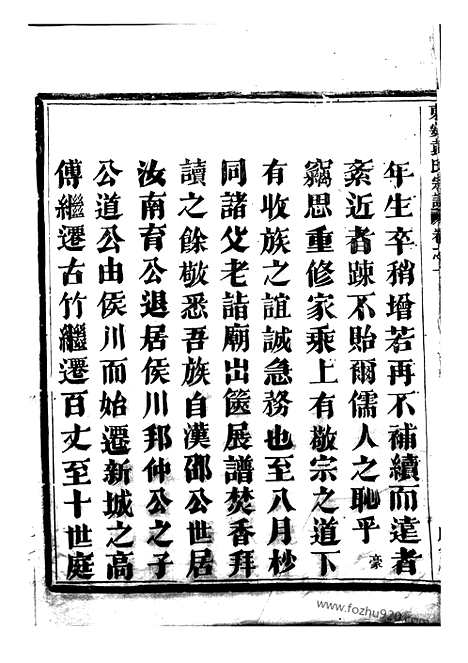 年生卒稍增若再不補續而遠者
紊近者踈不貽爾儒人之恥乎豪
竊思重修家乘上有敬宗之道下
有收族之誼誠急務也至八月杪
同諸父老詣廟出篋展譜焚香拜
讀之餘敬悉吾族自漢邵公世居
汝南育公退居侯川邦仲公之子
公道公由侯川而始遷新城之高
傅繼遷古竹繼遷百丈至十世庭
www.fozhu920.com